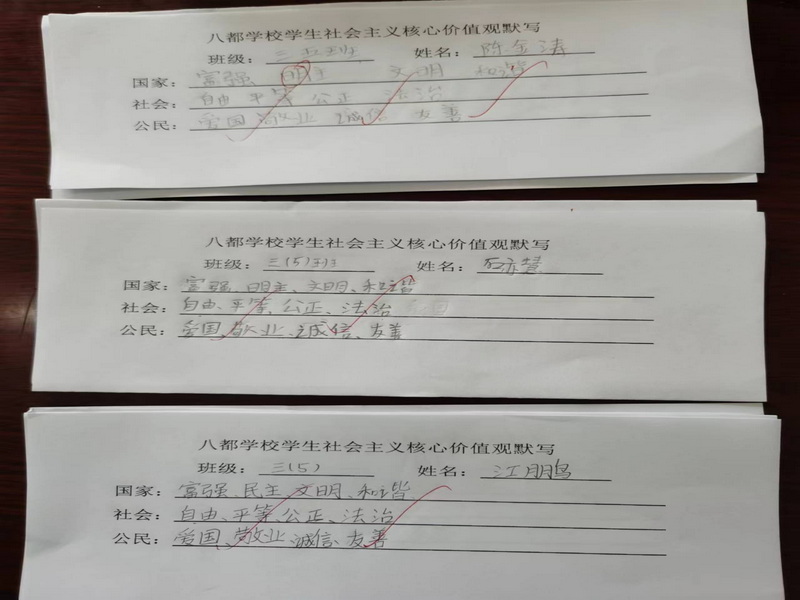 八都学校学生社会主义核心价值观默写
班级: 三 五班 姓名: 陈金涛
国家: 富强 明主 文明 和谐
社会: 自由 平等 公正 法治
公民: 爱国 敬业 诚信 友善
八都学校学生社会主义核心价值观默写
班级: 三(5)班 姓名:
国家: 富强、明主、文明、和谐
社会: 自由、平等、公正、法治
公民: 爱国、敬业、诚信、友善
八都学校学生社会主义核心价值观默写
班级: 三(5) 姓名: 江鹏
国家: 富强、民主、文明、和谐
社会: 自由、平等、公正、法治
公民: 爱国、敬业、诚信、友善